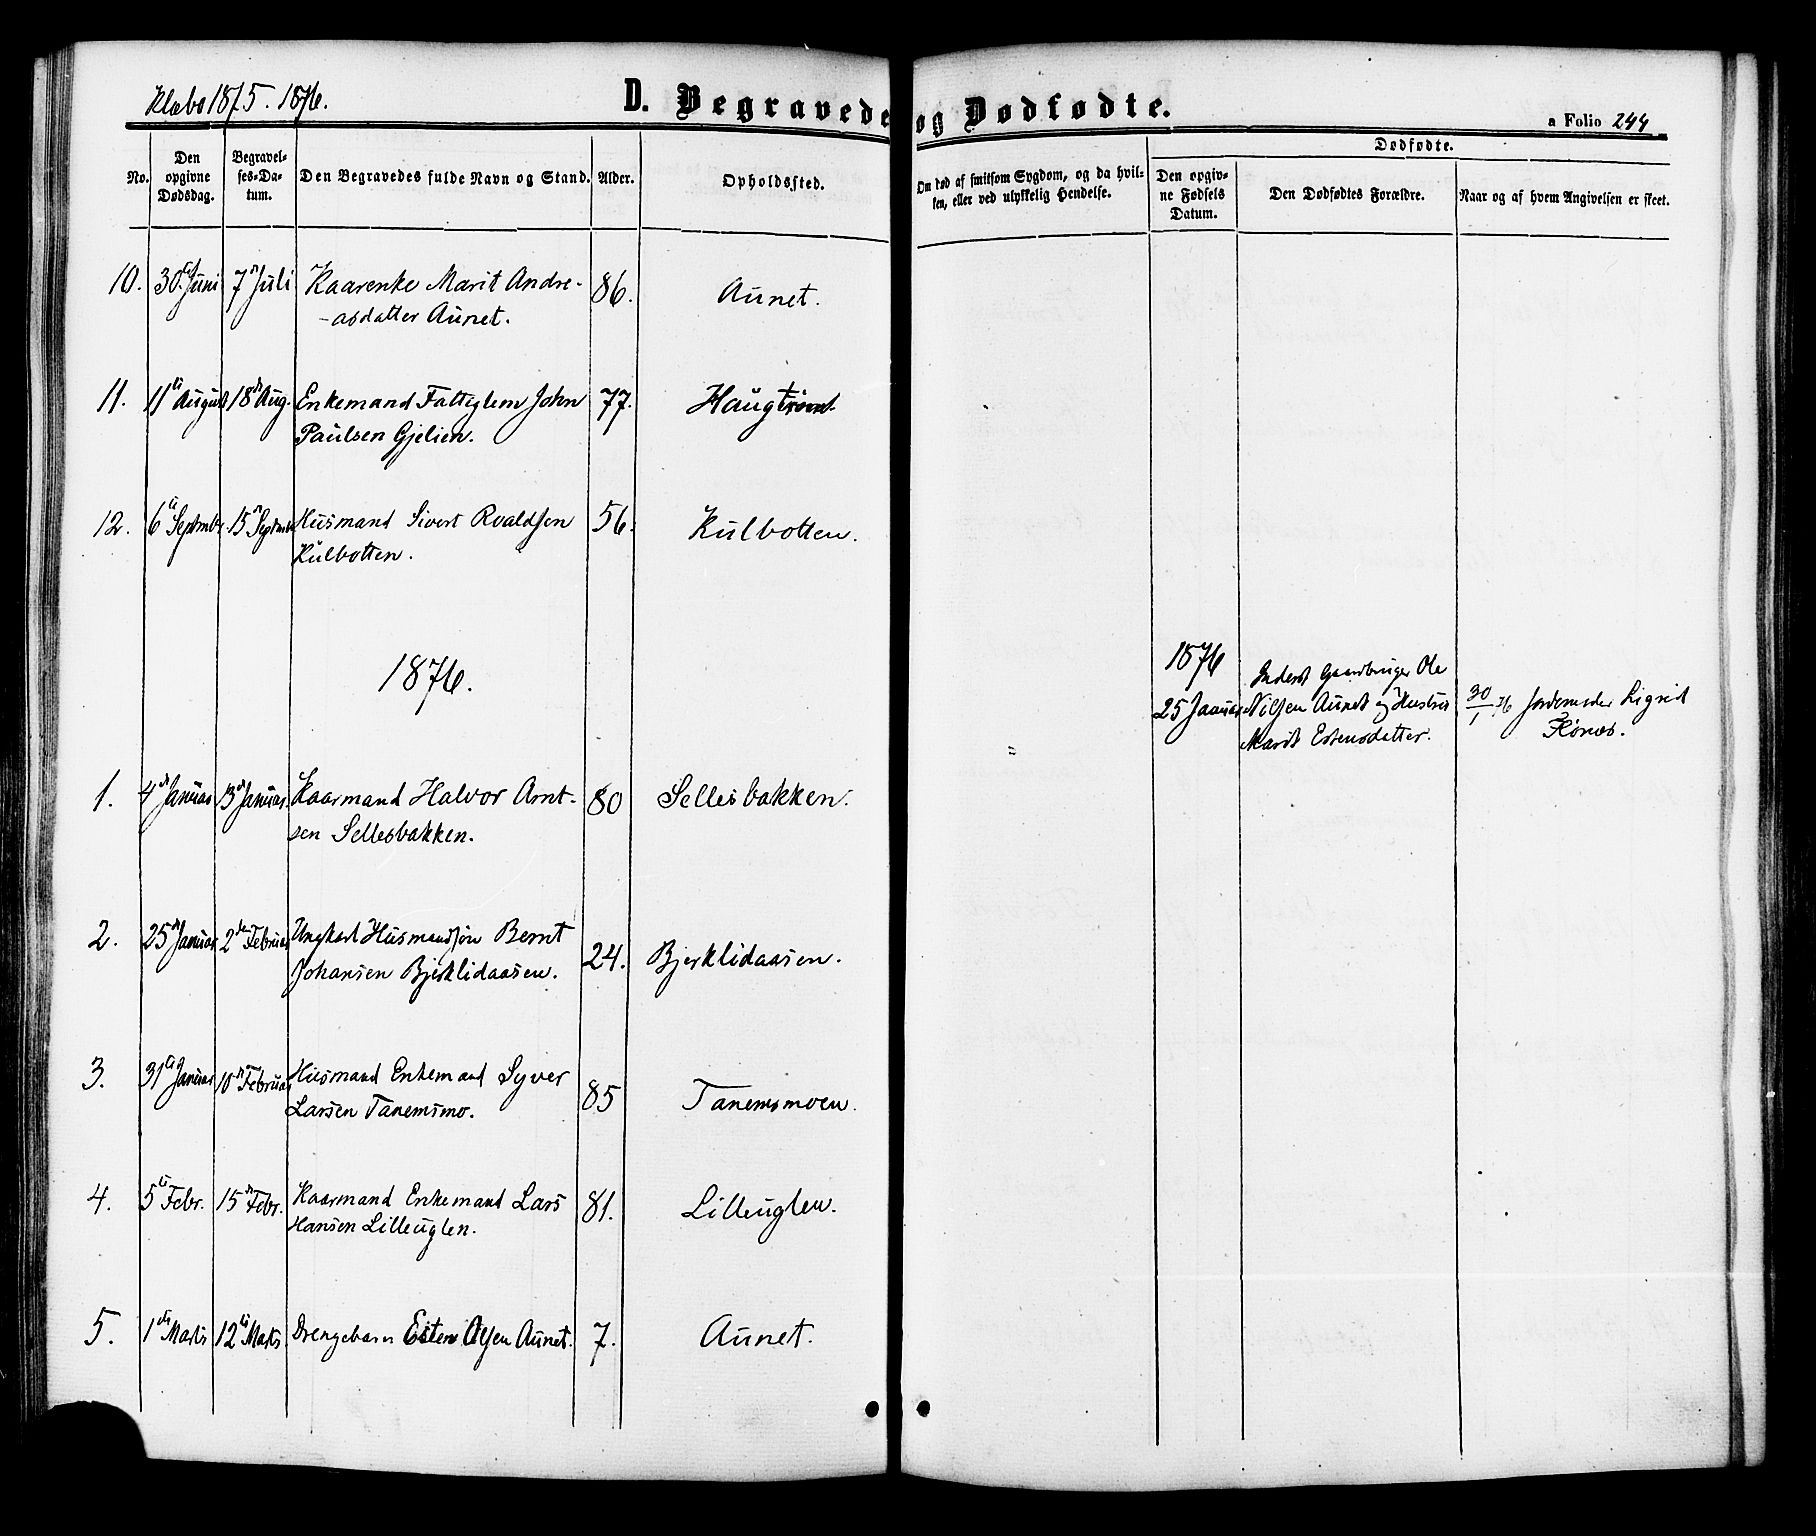 Klæbo 1875. 1876.
D. Begravede og Dødfødte.
a Folio 244
No.
Den opgivne Dødsdag.
Begravel-
ses-Da-
tum.
Den Begravedes fulde Navn og Stand.
Alder.
Opholdssted.
Om død af smitsom Sygdom, og da hvil-
ken, eller ved ulykkelig Hendelse.
Dødfødte.
Den opgiv-
ne Fødsels
Datum.
Den Dødfødtes Forældre.
Naar og af hvem Angivelsen er skeet.
10. 30te Juni 7n Juli Kaarenke Marit Andre- 86. Aunet.
-asdatter Aunet.
11. 11te August 18de Aug. Enkemand Fattiglem John 77.
Paulsen Gjelien.
12. 6te Septmbr. 15n Septmbr Husmand Sivert Roaldsen 56. Kulbotten.
Kulbotten.
1876.
1876
25 Januar
Gaardbruger Ole
Nilsen Aunet og Hustru
Marit Estensdatter.
30/1 76 Jordemoder Sigrid
1. 4de Januar 13de Januar. Kaarmand Halvor Arnt- 80 Sellesbakken.
sen Sellesbakken.
2. 25de Januar 2den Februar Ungkarl Husmandsøn Bernt 24. Bjerklidaasen.
Johansen Bjerklidaasen.
3. 31te Januar 10n Februar Husmand Enkemand Syver 85 Tanemsmoen.
Larsen Tanemsmo.
4. 5te Febr. 15de Febr. Kaarmand Enkemand Lars 81. Lilleuglen.
Hansen Lilleuglen.
5. 1ste Marts 12te Marts Drengebarn Esten Olsen Aunet. 7. Aunet.